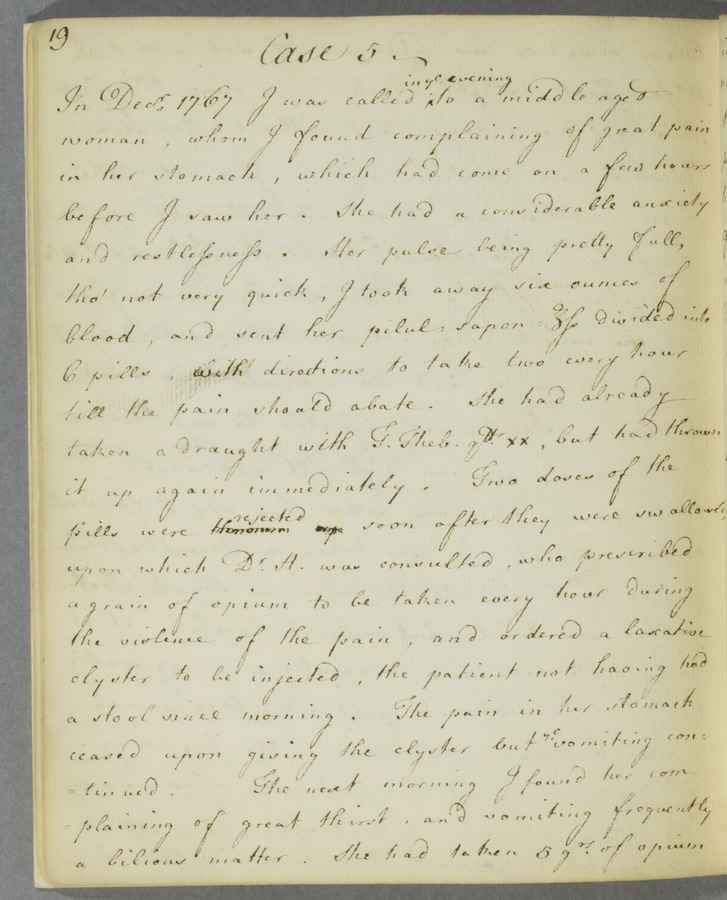 19
Case 5
in yᵉ evening
In Decr. 1767 I was called to a middle aged
woman, whom I found complaining of great pain
in her stomach, which had come on a few hours
before I saw her. She had a considerable anxiety
and restlessness. Her pulse being pretty full,
tho' not very quick, I took away six ounces of
blood, and sent her pilul: sapon: ʒſs divided into
6 pills, with directions to take two every hour
till the pain should abate. She had already
taken a draught with T. Theb. gtt xx, but had thrown
it up again immediately. Two doses of the
rejected
pills were thrown up soon after they were swallowed,
upon which Dr. H. was consulted, who prescribed
a grain of opium to be taken every hour during
the violence of the pain, and ordered a laxative
clyster to be injected, the patient not having had
a stool since morning. The pain in her stomach
ceased upon giving the clyster but yᵉ vomiting con:
=tinued. The next morning I found her com=
=plaining of great thirst, and vomiting frequently
a bilious matter. She had taken 5 grs. of opium